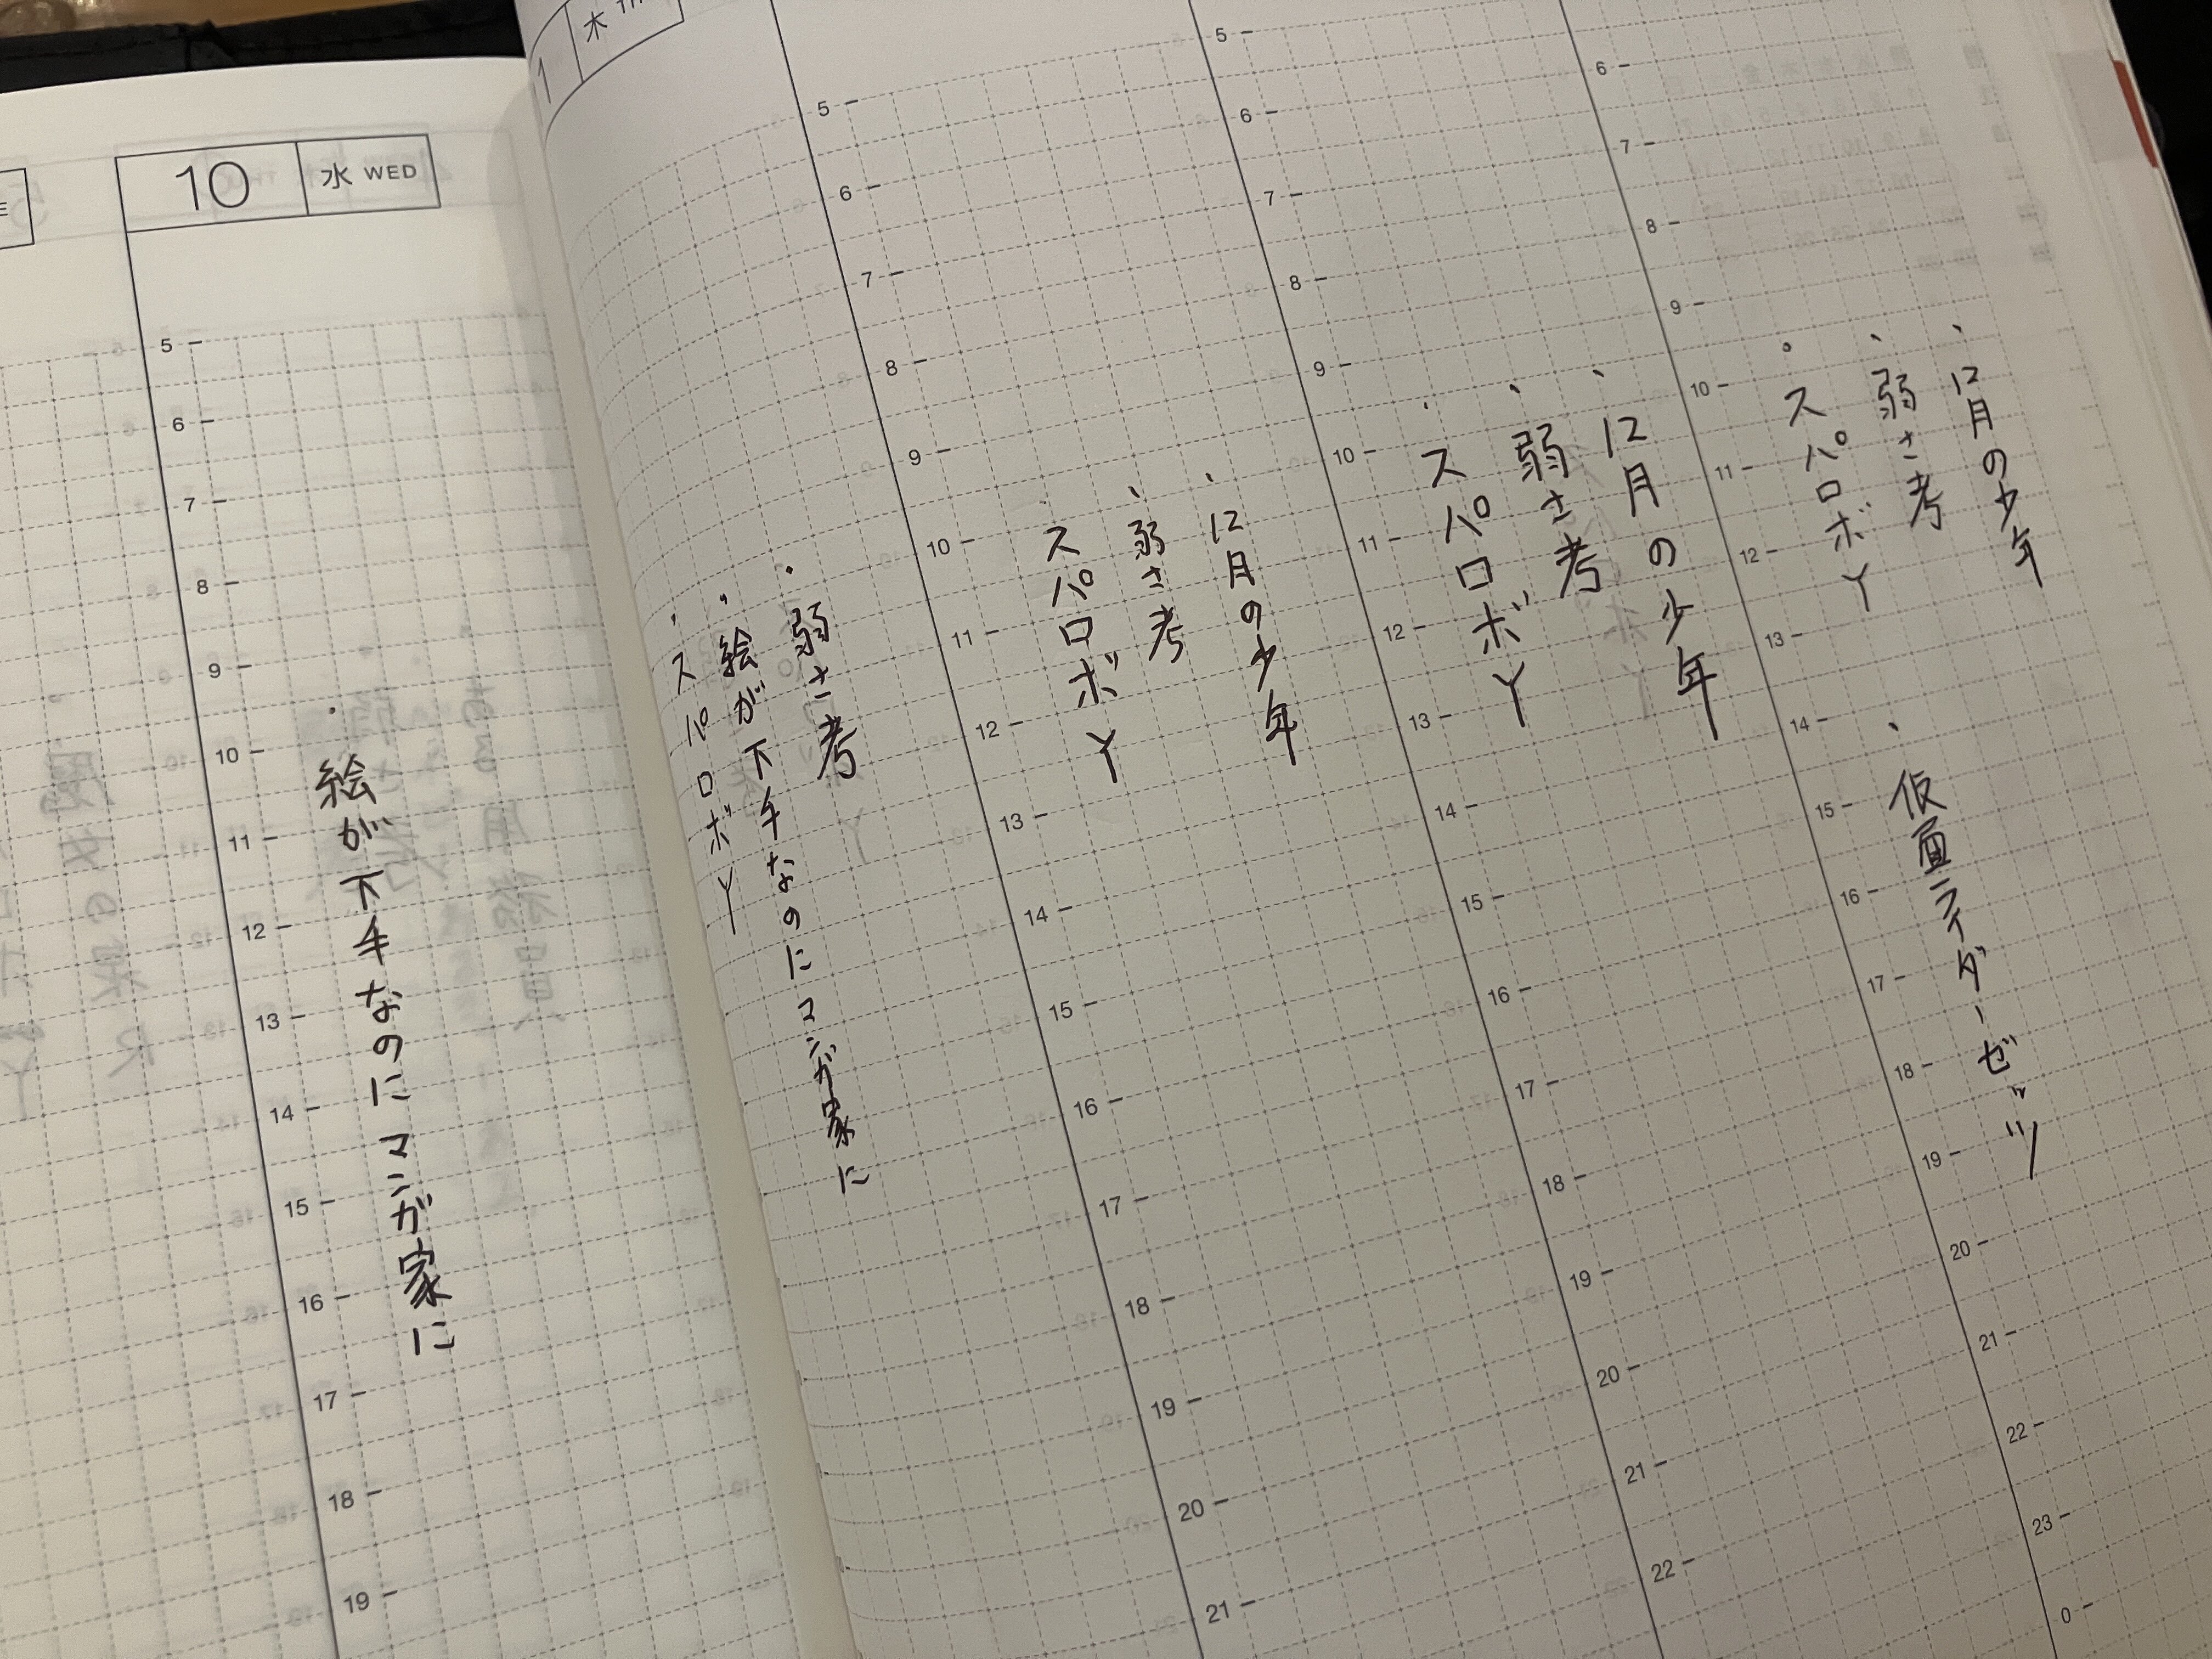 10 水 WED
5
6
7
8
9
10
11
12
13
14
15
16
17
18
19
・絵が下手なのにマンガ家に
木
・弱さ考
・絵が下手なのにマンガ家に
・スパロボY
5
6
7
8
9
10
11
12
13
14
15
16
17
18
19
20
21
・12月の少年
・弱さ考
・スパロボY
5
6
7
8
9
10
11
12
13
14
15
16
17
18
19
20
21
22
・12月の少年
・弱さ考
・スパロボY
6
7
8
9
10
11
12
13
14
15
16
17
18
19
20
21
22
23
0
・12月の少年
・弱さ考
・スパロボY
・仮面ライダーゼッツ